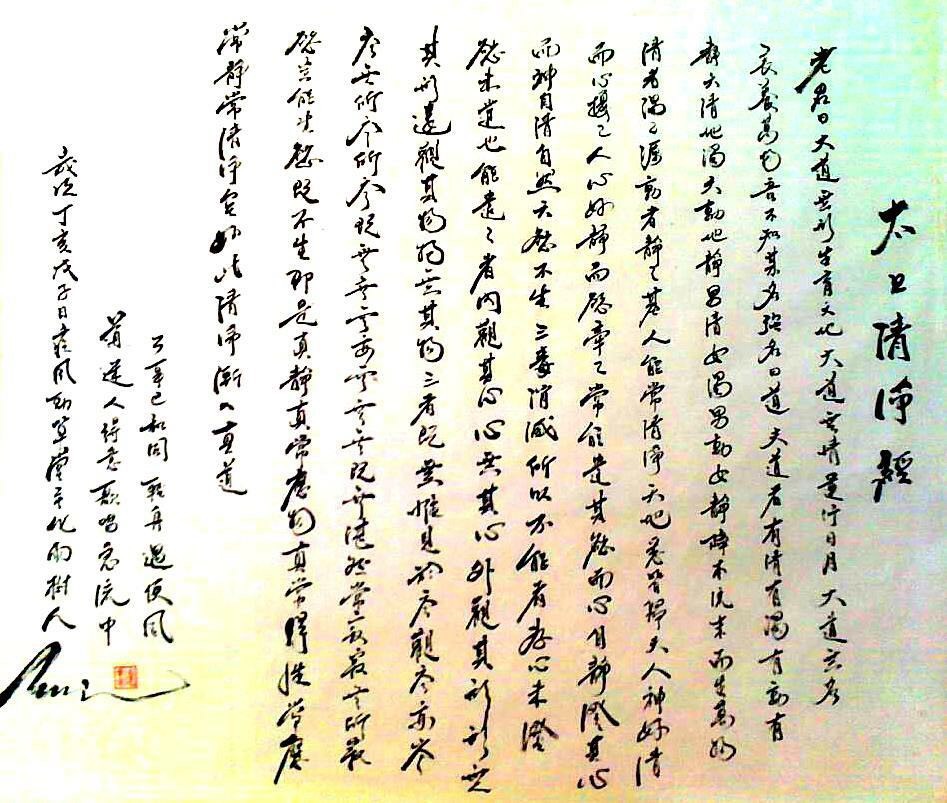 太上清净經
老君曰大道無形生育天地大道無情運行日月大道無名
長養萬物吾不知其名強名曰道夫道者有清有濁有動有
靜天清地濁天動地靜男清女濁男動女靜降本流末而生萬物
清者濁之源動者靜之基人能常清淨天地悉皆歸夫人神好清
而心擾之人心好靜而慾牽之常能遣其慾而心自靜澄其心
而神自清自然六慾不生三毒消滅所以不能者為心未澄
慾未遣也能遣之者內觀其心心無其心外觀其形形無
其形遠觀其物物無其物三者既無惟見於空觀空亦空
空無所空所空既無無無亦無無無既無湛然常寂寂無所寂
慾豈能生慾既不生即是真靜真常應物真常得性常應
常靜常清淨矣如此清淨漸入真道
萬事已和同 輕舟遇便風
道人得意 急流中
歲次丁亥戊子日 風 草堂 化雨樹人